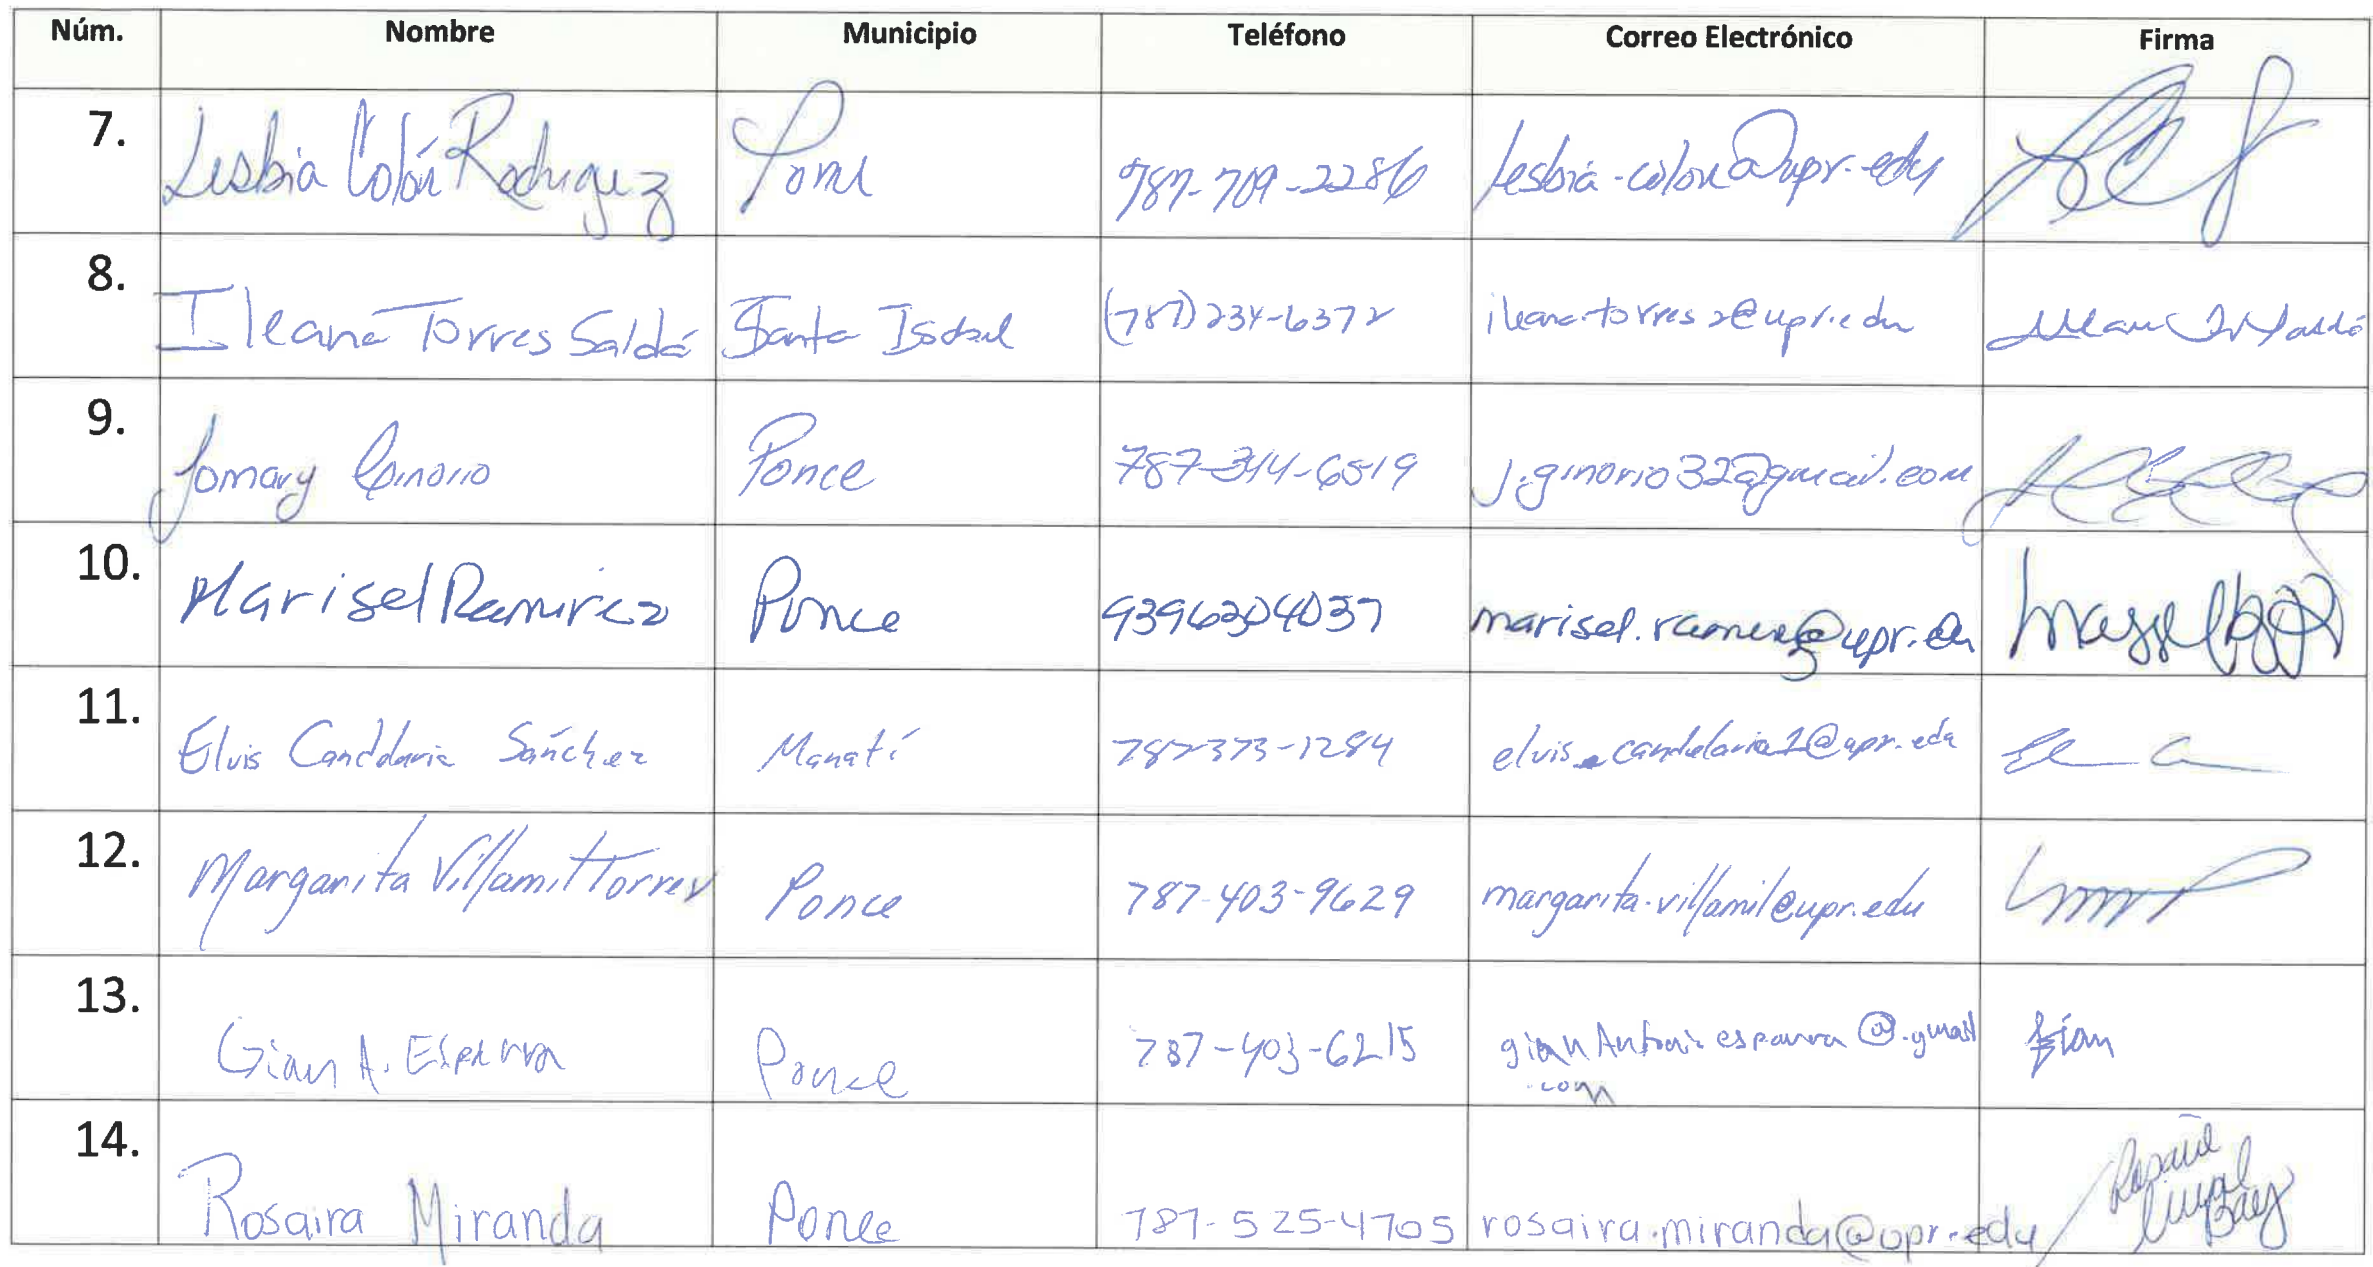 Núm. Nombre Municipio Teléfono Correo Electrónico Firma
7. Lesbia Colón Rodriguez Ponce 787-709-2286 lesbia.colon@upr.edu
8. Ileana Torres Saldá Santa Isabel (787)234-6372 ileana.torres2@upr.edu
9. Jomary Ginorio Ponce 787-314-6519 j.ginorio32@gmail.com
10. Marisel Ramirez Ponce 9396304037 marisel.ramirez@upr.edu
11. Elvis Candelaria Sánchez Manatí 787-373-1284 elvis.candelaria1@upr.edu
12. Margarita Villamil Torres Ponce 787-403-9629 margarita.villamil@upr.edu
13. Gian A. Esparra Ponce 787-403-6215 gianAntonioesparra@.gmail Gian
.com
14. Rosaira Miranda Ponce 787-525-4705 rosaira.miranda@upr.edu